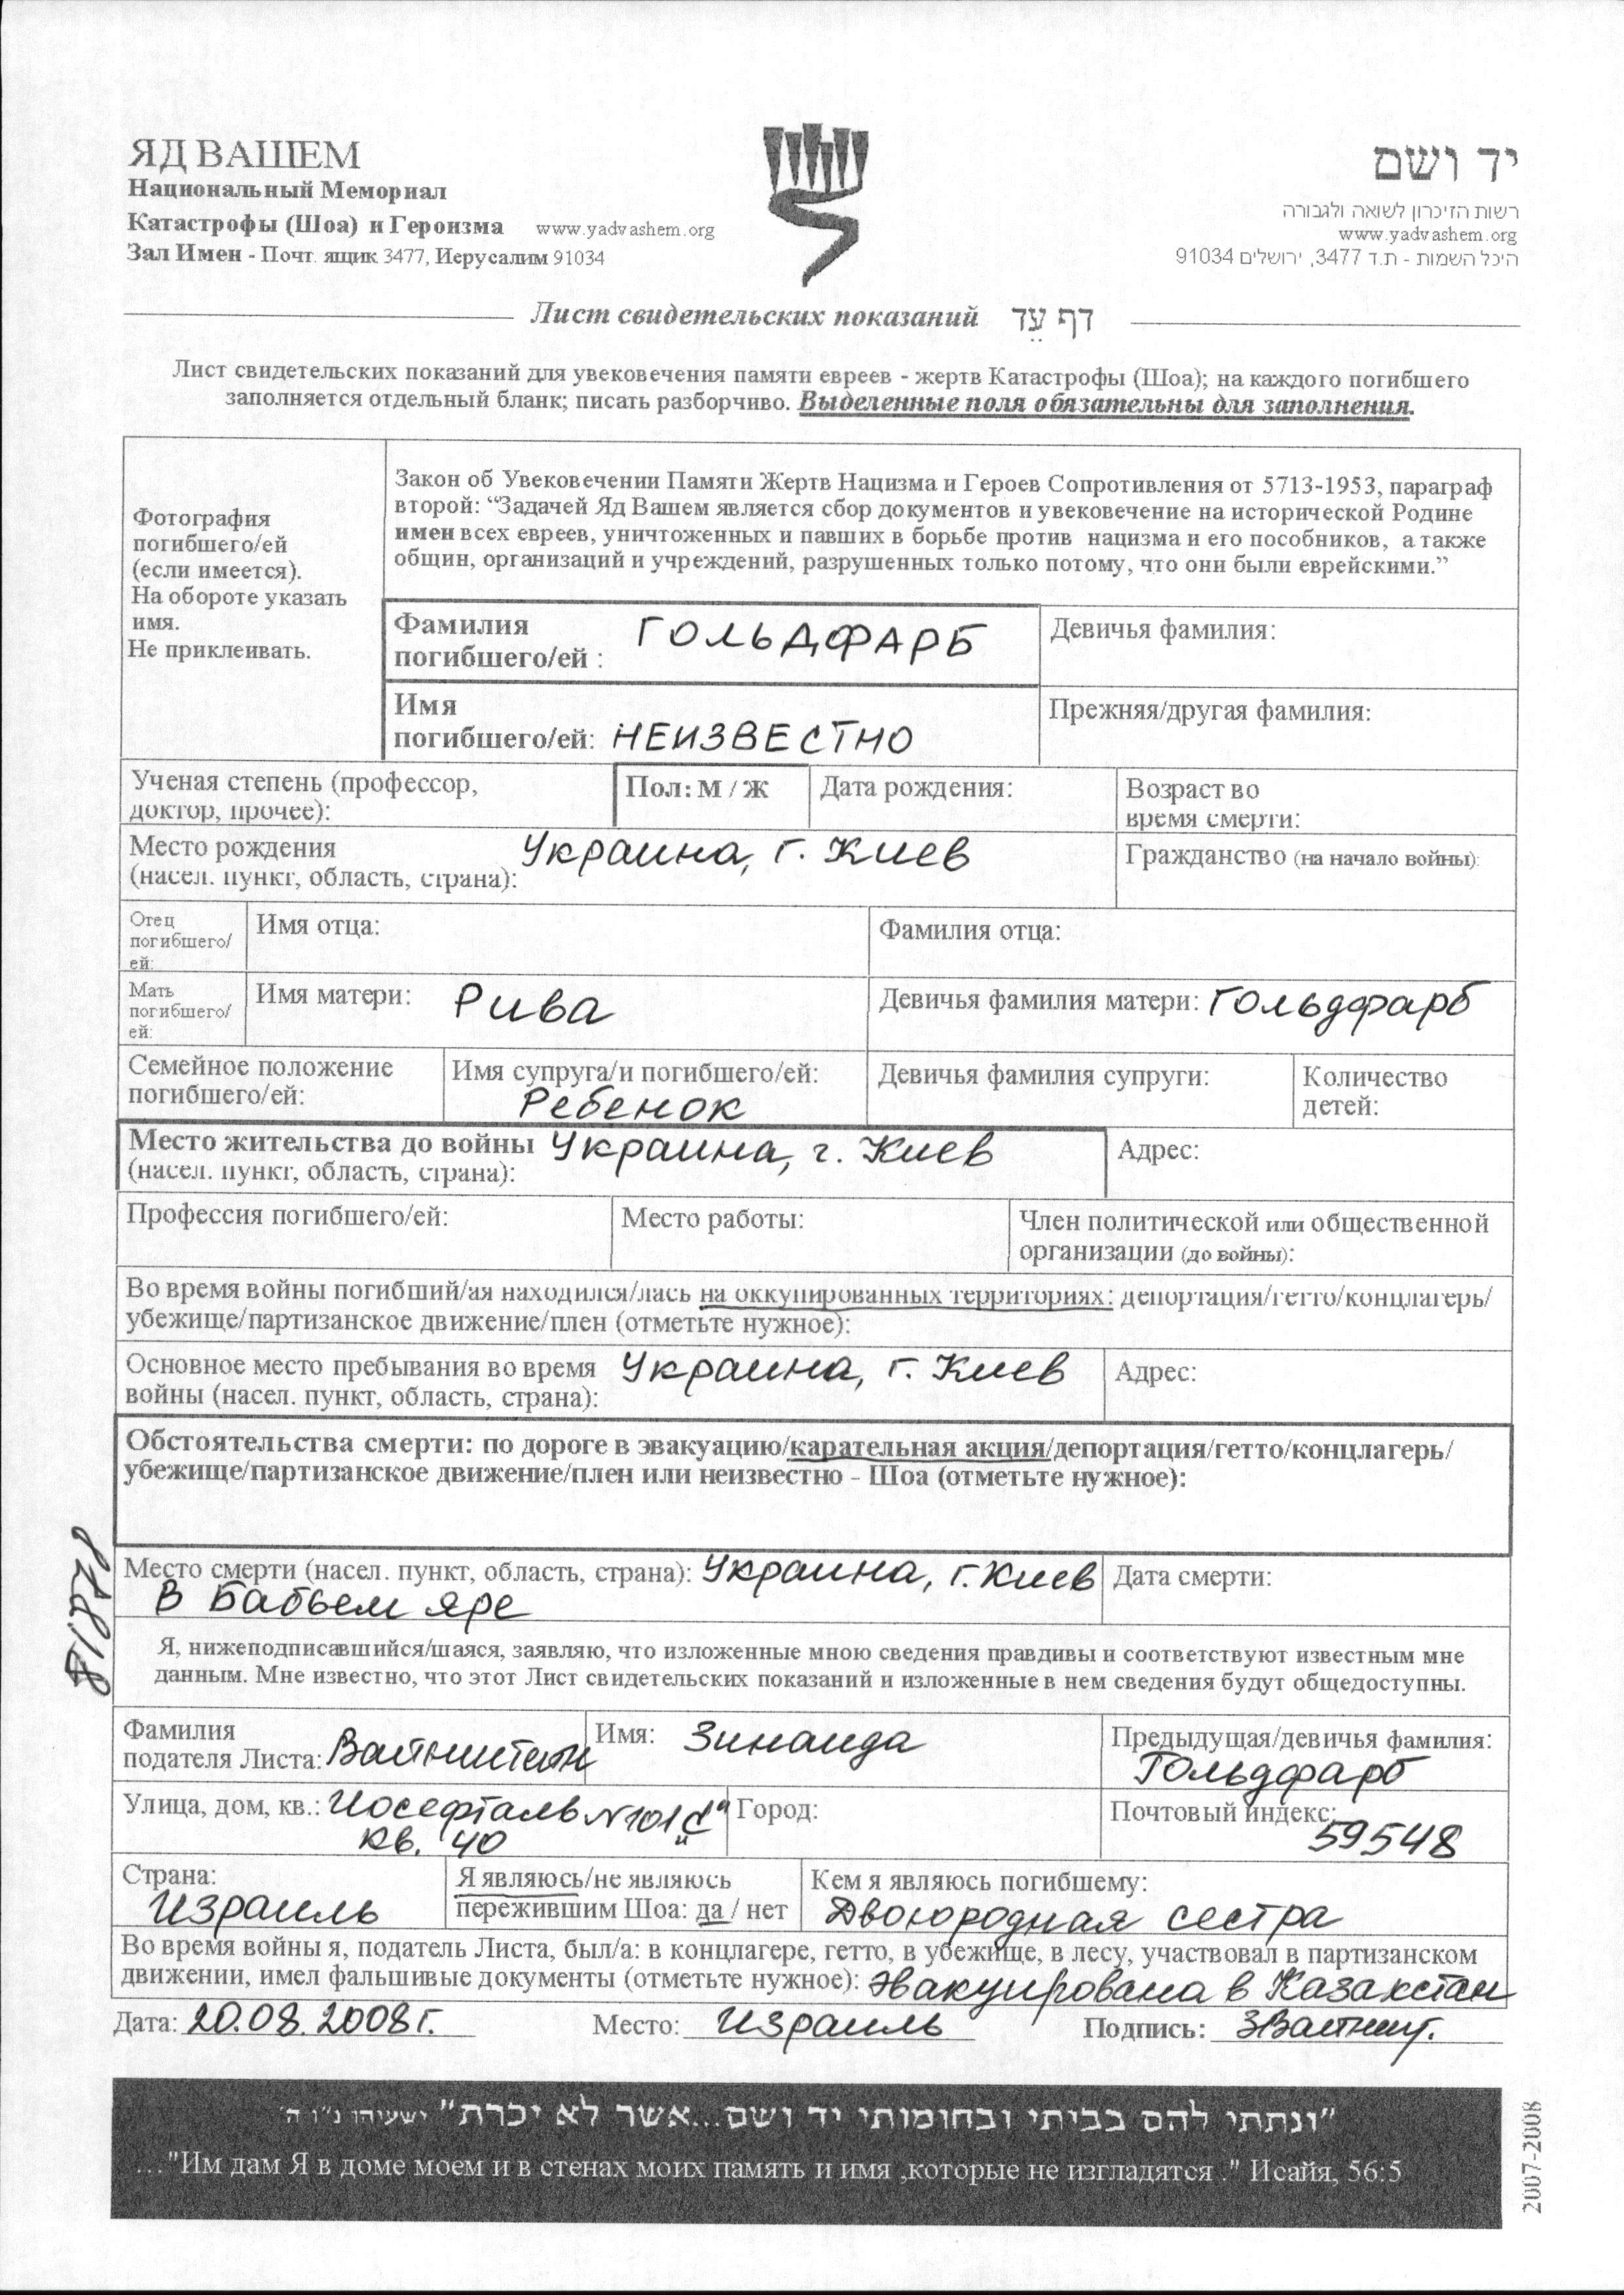 ЯД ВАШЕМ
Национальный Мемориал
Катастрофы (Шоа) и Героизма www.yadvashem.org
Зал Имен - Почт. ящик 3477, Иерусалим 91034
יד ושם
רשות הזיכרון לשואה ולגבורה
www.yadvashem.org
היכל השמות - ת.ד 3477, ירושלים 91034
Лист свидетельских показаний דף עֵד
Лист свидетельских показаний для увековечения памяти евреев - жертв Катастрофы (Шоа); на каждого погибшего
заполняется отдельный бланк; писать разборчиво. Выделенные поля обязательны для заполнения.
Фотография
погибшего/ей
(если имеется).
На обороте указать
имя.
Не приклеивать.
Закон об Увековечении Памяти Жертв Нацизма и Героев Сопротивления от 5713-1953, параграф
второй: “Задачей Яд Вашем является сбор документов и увековечение на исторической Родине
имен всех евреев, уничтоженных и павших в борьбе против нацизма и его пособников, а также
общин, организаций и учреждений, разрушенных только потому, что они были еврейскими.”
Фамилия
погибшего/ей : ГОЛЬДФАРБ
Девичья фамилия:
Имя
погибшего/ей: НЕИЗВЕСТНО
Прежняя/другая фамилия:
Ученая степень (профессор,
доктор, прочее):
Пол: М / Ж
Дата рождения:
Возраст во
время смерти:
Место рождения Украина, г. Киев
(насел. пункт, область, страна):
Гражданство (на начало войны):
Отец
погибшего/
ей:
Имя отца:
Фамилия отца:
Мать
погибшего/
ей:
Имя матери: Рива
Девичья фамилия матери: Гольдфарб
Семейное положение
погибшего/ей:
Имя супруга/и погибшего/ей:
Ребенок
Девичья фамилия супруги:
Количество
детей:
Место жительства до войны Украина, г. Киев
(насел. пункт, область, страна):
Адрес:
Профессия погибшего/ей:
Место работы:
Член политической или общественной
организации (до войны):
Во время войны погибший/ая находился/лась на оккупированных территориях: депортация/гетто/концлагерь/
убежище/партизанское движение/плен (отметьте нужное):
Основное место пребывания во время Украина, г. Киев
войны (насел. пункт, область, страна):
Адрес:
Обстоятельства смерти: по дороге в эвакуацию/карательная акция/депортация/гетто/концлагерь/
убежище/партизанское движение/плен или неизвестно - Шоа (отметьте нужное):
Место смерти (насел. пункт, область, страна): Украина, г. Киев
В Бабьем яре
Дата смерти:
Я, нижеподписавшийся/шаяся, заявляю, что изложенные мною сведения правдивы и соответствуют известным мне
данным. Мне известно, что этот Лист свидетельских показаний и изложенные в нем сведения будут общедоступны.
Фамилия
подателя Листа: Вайнштейн
Имя: Зинаида
Предыдущая/девичья фамилия:
Гольдфарб
Улица, дом, кв.: Иосефталь N 101 „С"
кв. 40
Город:
Почтовый индекс:
59548
Страна:
Израиль
Я являюсь/не являюсь
пережившим Шоа: да / нет
Кем я являюсь погибшему:
Двоюродная сестра
Во время войны я, податель Листа, был/а: в концлагере, гетто, в убежище, в лесу, участвовал в партизанском
движении, имел фальшивые документы (отметьте нужное): эвакуирована в Казахстан
Дата: 20.08.2008г. Место: Израиль Подпись: ЗВайншт.
"ונתתי להם בביתי ובחומותי יד ושם...אשר לא יכרת" ישעיהו נ"ו ה'
..."Им дам Я в доме моем и в стенах моих память и имя ,которые не изгладятся ." Исайя, 56:5
2007-2008